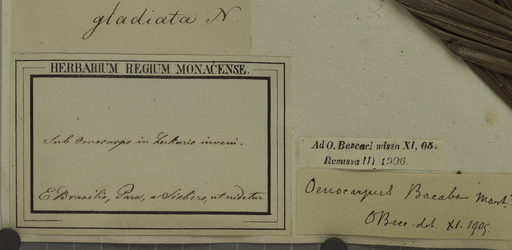 gladiata N
HERBARIUM REGIUM MONACENSE.
Sub Oenocarpo in herbario inveni.
E Brasilia, Para, a Siebero, ut videtur
Ad O. Beccari missa XI, 05.
Remissa III 1906.
Oenocarpus Bacaba Mart.
O Becc. det. XI. 1905